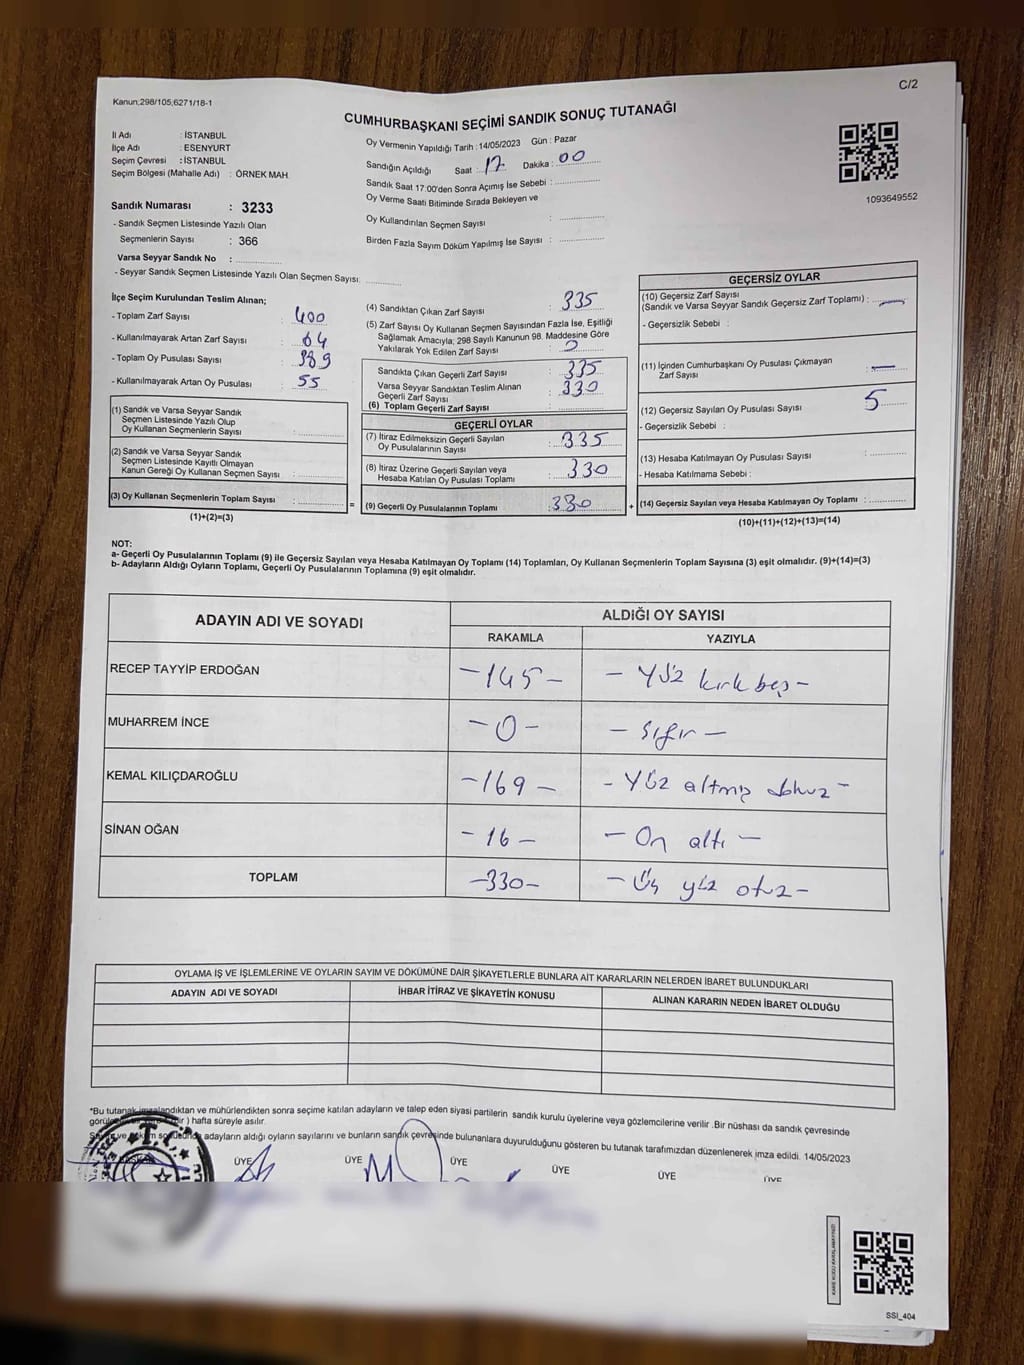 C/2
Kanun;298/105;6271/18-1
CUMHURBAŞKANI SEÇİMİ SANDIK SONUÇ TUTANAĞI
İl Adı : İSTANBUL
İlçe Adı : ESENYURT
Seçim Çevresi : İSTANBUL
Seçim Bölgesi (Mahalle Adı) : ÖRNEK MAH.
Sandık Numarası : 3233
- Sandık Seçmen Listesinde Yazılı Olan
Seçmenlerin Sayısı : 366
Varsa Seyyar Sandık No :
- Seyyar Sandık Seçmen Listesinde Yazılı Olan Seçmen Sayısı:
Oy Vermenin Yapıldığı Tarih : 14/05/2023 Gün : Pazar
Sandığın Açıldığı Saat : 17 Dakika : 00
Sandık Saat 17:00'den Sonra Açımış İse Sebebi :
Oy Verme Saati Bitiminde Sırada Bekleyen ve
Oy Kullandırılan Seçmen Sayısı :
Birden Fazla Sayım Döküm Yapılmış İse Sayısı :
1093649552
İlçe Seçim Kurulundan Teslim Alınan;
- Toplam Zarf Sayısı : 400
- Kullanılmayarak Artan Zarf Sayısı : 64
- Toplam Oy Pusulası Sayısı : 389
- Kullanılmayarak Artan Oy Pusulası : 55
(1) Sandık ve Varsa Seyyar Sandık
Seçmen Listesinde Yazılı Olup
Oy Kullanan Seçmenlerin Sayısı :
(2) Sandık ve Varsa Seyyar Sandık
Seçmen Listesinde Kayıtlı Olmayan
Kanun Gereği Oy Kullanan Seçmen Sayısı :
(3) Oy Kullanan Seçmenlerin Toplam Sayısı :
(1)+(2)=(3)
=
(4) Sandıktan Çıkan Zarf Sayısı : 335
(5) Zarf Sayısı Oy Kullanan Seçmen Sayısından Fazla İse, Eşitliği
Sağlamak Amacıyla; 298 Sayılı Kanunun 98. Maddesine Göre
Yakılarak Yok Edilen Zarf Sayısı :
Sandıkta Çıkan Geçerli Zarf Sayısı : 335
Varsa Seyyar Sandıktan Teslim Alınan
Geçerli Zarf Sayısı : 330
(6) Toplam Geçerli Zarf Sayısı :
GEÇERLİ OYLAR
(7) İtiraz Edilmeksizin Geçerli Sayılan
Oy Pusulalarının Sayısı : 335
(8) İtiraz Üzerine Geçerli Sayılan veya
Hesaba Katılan Oy Pusulası Toplamı : 330
(9) Geçerli Oy Pusulalarının Toplamı : 330
+
GEÇERSİZ OYLAR
(10) Geçersiz Zarf Sayısı
(Sandık ve Varsa Seyyar Sandık Geçersiz Zarf Toplamı) : —
- Geçersizlik Sebebi :
(11) İçinden Cumhurbaşkanı Oy Pusulası Çıkmayan
Zarf Sayısı : —
(12) Geçersiz Sayılan Oy Pusulası Sayısı : 5
- Geçersizlik Sebebi :
(13) Hesaba Katılmayan Oy Pusulası Sayısı :
- Hesaba Katılmama Sebebi :
(14) Geçersiz Sayılan veya Hesaba Katılmayan Oy Toplamı :
(10)+(11)+(12)+(13)=(14)
NOT:
a- Geçerli Oy Pusulalarının Toplamı (9) ile Geçersiz Sayılan veya Hesaba Katılmayan Oy Toplamı (14) Toplamları, Oy Kullanan Seçmenlerin Toplam Sayısına (3) eşit olmalıdır. (9)+(14)=(3)
b- Adayların Aldığı Oyların Toplamı, Geçerli Oy Pusulalarının Toplamına (9) eşit olmalıdır.
ADAYIN ADI VE SOYADI ALDIĞI OY SAYISI
RAKAMLA YAZIYLA
RECEP TAYYİP ERDOĞAN -145- -Yüz kırk beş-
MUHARREM İNCE -0- -Sıfır-
KEMAL KILIÇDAROĞLU -169- -Yüz altmış dokuz-
SİNAN OĞAN -16- -On altı-
TOPLAM -330- -Üç yüz otuz-
OYLAMA İŞ VE İŞLEMLERİNE VE OYLARIN SAYIM VE DÖKÜMÜNE DAİR ŞİKAYETLERLE BUNLARA AİT KARARLARIN NELERDEN İBARET BULUNDUKLARI
ADAYIN ADI VE SOYADI İHBAR İTİRAZ VE ŞİKAYETİN KONUSU ALINAN KARARIN NEDEN İBARET OLDUĞU
*Bu tutanak imzalandıktan ve mühürlendikten sonra seçime katılan adayların ve talep eden siyasi partilerin sandık kurulu üyelerine veya gözlemcilerine verilir .Bir nüshası da sandık çevresinde
) hafta süreyle asılır.
adayların aldığı oyların sayılarını ve bunların sandık çevresinde bulunanlara duyurulduğunu gösteren bu tutanak tarafımızdan düzenlenerek imza edildi. 14/05/2023
BAŞKAN ÜYE ÜYE ÜYE ÜYE ÜYE ÜYE
SSI_404